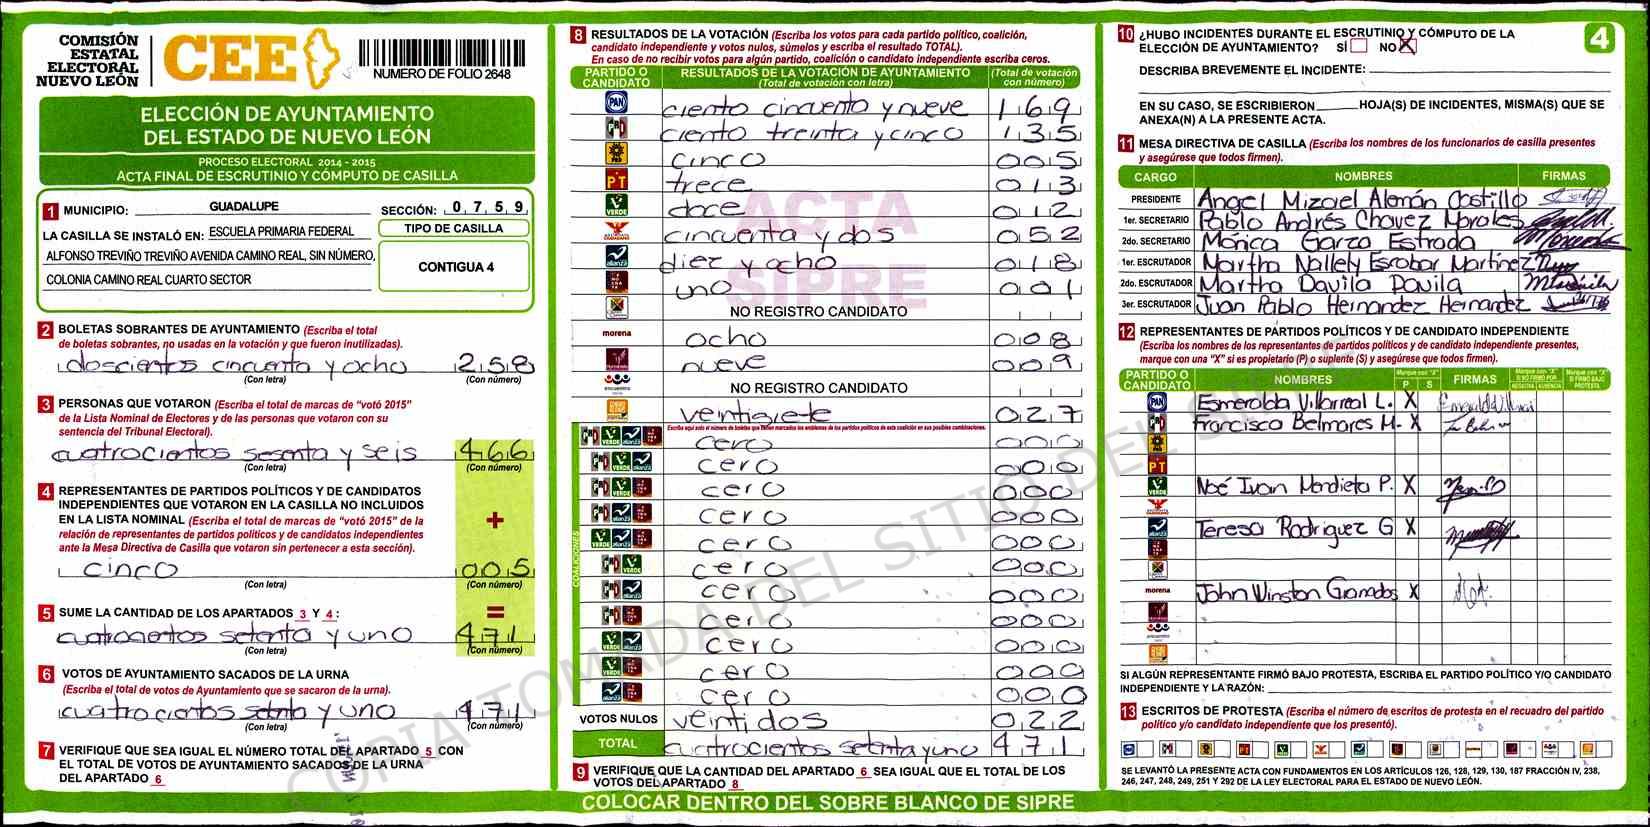 COMISIÓN
ESTATAL
ELECTORAL
NUEVO LEÓN
CEE
NUMERO DE FOLIO 2648
ELECCIÓN DE AYUNTAMIENTO
DEL ESTADO DE NUEVO LEÓN
PROCESO ELECTORAL 2014 - 2015
ACTA FINAL DE ESCRUTINIO Y CÓMPUTO DE CASILLA
1 MUNICIPIO: GUADALUPE SECCIÓN: 0 7 5 9
LA CASILLA SE INSTALÓ EN: ESCUELA PRIMARIA FEDERAL
ALFONSO TREVIÑO TREVIÑO AVENIDA CAMINO REAL, SIN NÚMERO,
COLONIA CAMINO REAL CUARTO SECTOR
TIPO DE CASILLA
CONTIGUA 4
2 BOLETAS SOBRANTES DE AYUNTAMIENTO (Escriba el total
de boletas sobrantes, no usadas en la votación y que fueron inutilizadas).
doscientos cincuenta y ocho 2 5 8
(Con letra) (Con número)
3 PERSONAS QUE VOTARON (Escriba el total de marcas de “votó 2015”
de la Lista Nominal de Electores y de las personas que votaron con su
sentencia del Tribunal Electoral).
cuatrocientos sesenta y seis 4 6 6
(Con letra) (Con número)
4 REPRESENTANTES DE PARTIDOS POLÍTICOS Y DE CANDIDATOS
INDEPENDIENTES QUE VOTARON EN LA CASILLA NO INCLUIDOS
EN LA LISTA NOMINAL (Escriba el total de marcas de “votó 2015” de la
relación de representantes de partidos políticos y de candidatos independientes
ante la Mesa Directiva de Casilla que votaron sin pertenecer a esta sección).
+
cinco 0 0 5
(Con letra) (Con número)
5 SUME LA CANTIDAD DE LOS APARTADOS 3 Y 4 : =
cuatrocientos setenta y uno 4 7 1
(Con letra) (Con número)
6 VOTOS DE AYUNTAMIENTO SACADOS DE LA URNA
(Escriba el total de votos de Ayuntamiento que se sacaron de la urna).
cuatrocientos setenta y uno 4 7 1
(Con letra) (Con número)
7 VERIFIQUE QUE SEA IGUAL EL NÚMERO TOTAL DEL APARTADO 5 CON
EL TOTAL DE VOTOS DE AYUNTAMIENTO SACADOS DE LA URNA
DEL APARTADO 6
8 RESULTADOS DE LA VOTACIÓN (Escriba los votos para cada partido político, coalición,
candidato independiente y votos nulos, súmelos y escriba el resultado TOTAL).
En caso de no recibir votos para algún partido, coalición o candidato independiente escriba ceros.
PARTIDO O CANDIDATO RESULTADOS DE LA VOTACIÓN DE AYUNTAMIENTO (Total de votación con letra) (Total de votación con número)
PAN ciento cincuenta y nueve 1 6 9
PRI ciento treinta y cinco 1 3 5
PRD cinco 0 0 5
PT trece 0 1 3
VERDE doce 0 1 2
cincuenta y dos 0 5 2
alianza diez y ocho 0 1 8
uno 0 0 1
NO REGISTRO CANDIDATO
morena ocho 0 0 8
nueve 0 0 9
encuentro NO REGISTRO CANDIDATO
veintisiete 0 2 7
Escriba aquí solo el número de boletas que tienen marcados los emblemas de los partidos políticos de esta coalición en sus posibles combinaciones.
COALICIONES
cero 0 0 0
cero 0 0 0
cero 0 0 0
cero 0 0 0
cero 0 0 0
cero 0 0 0
cero 0 0 0
cero 0 0 0
cero 0 0 0
cero 0 0 0
cero 0 0 0
VOTOS NULOS veintidos 0 2 2
TOTAL cuatrocientos setenta y uno 4 7 1
9 VERIFIQUE QUE LA CANTIDAD DEL APARTADO 6 SEA IGUAL QUE EL TOTAL DE LOS
VOTOS DEL APARTADO 8
ACTA
SIPRE
COPIA TOMADA DEL SITIO DEL SIPRE
COLOCAR DENTRO DEL SOBRE BLANCO DE SIPRE
10 ¿HUBO INCIDENTES DURANTE EL ESCRUTINIO Y CÓMPUTO DE LA
ELECCIÓN DE AYUNTAMIENTO? SÍ NO X
4
DESCRIBA BREVEMENTE EL INCIDENTE:
EN SU CASO, SE ESCRIBIERON HOJA(S) DE INCIDENTES, MISMA(S) QUE SE
ANEXA(N) A LA PRESENTE ACTA.
11 MESA DIRECTIVA DE CASILLA (Escriba los nombres de los funcionarios de casilla presentes
y asegúrese que todos firmen).
CARGO NOMBRES FIRMAS
PRESIDENTE Angel Mizael Alemán Castillo
1er. SECRETARIO Pablo Andrés Chavez Morales
2do. SECRETARIO Monica Garza Estrada
1er. ESCRUTADOR Martha Nallely Escobar Martinez
2do. ESCRUTADOR Martha Davila Davila
3er. ESCRUTADOR Juan Pablo Hernandez Hernandez
12 REPRESENTANTES DE PARTIDOS POLÍTICOS Y DE CANDIDATO INDEPENDIENTE
(Escriba los nombres de los representantes de partidos políticos y de candidato independiente presentes,
marque con una “X” si es propietario (P) o suplente (S) y asegúrese que todos firmen).
PARTIDO O CANDIDATO NOMBRES Marque con “X” P S FIRMAS Marque con “X” SI NO FIRMÓ POR NEGATIVA AUSENCIA Marque con “X” SI FIRMÓ BAJO PROTESTA
PAN Esmeralda Villarreal L. X
PRI Francisco Belmares M. X
PRD
PT
VERDE Noé Ivan Mendieta P. X
alianza Teresa Rodriguez G X
morena John Winston Granados X
encuentro
SI ALGÚN REPRESENTANTE FIRMÓ BAJO PROTESTA, ESCRIBA EL PARTIDO POLÍTICO Y/O CANDIDATO
INDEPENDIENTE Y LA RAZÓN:
13 ESCRITOS DE PROTESTA (Escriba el número de escritos de protesta en el recuadro del partido
político y/o candidato independiente que los presentó).
SE LEVANTÓ LA PRESENTE ACTA CON FUNDAMENTOS EN LOS ARTÍCULOS 126, 128, 129, 130, 187 FRACCIÓN IV, 238,
246, 247, 248, 249, 251 Y 292 DE LA LEY ELECTORAL PARA EL ESTADO DE NUEVO LEÓN.